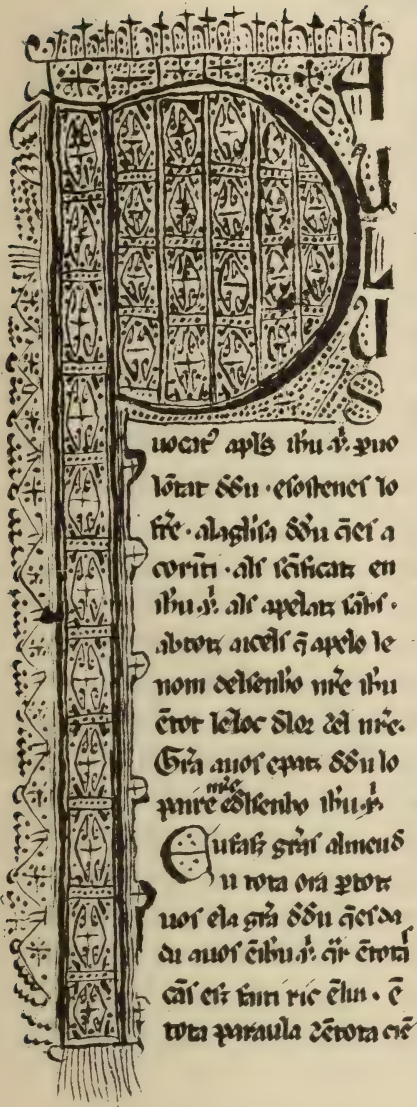 PAULUS
uocat' apl's ih'u .x̄. ꝑ uo
lōtat d'd'u · e sostenes lo
fr̄e · a la gl'isa d'd'u q̄ es a
corīti · als sc̄ificatz en
ih'u .x̄. als apelatz sāhs ·
ab totz aicels q̄ apelo le
nom del senho nr̄e ih'u
ē tot le loc d'lor z el nr̄e.
Gr̄a a uos e patz d'd'u lo
paire nr̄e e d'l senho ih'u .x̄.
Eu fatz gr̄as al meu d'
u tota ora ꝑ totz
uos e la gr̄a d'd'u q̄ es da
du a uos ē ih'u .x̄. q̄r ē totas
cās etz faiti ric ē lui · ē
tota paraula z ē tota ciē